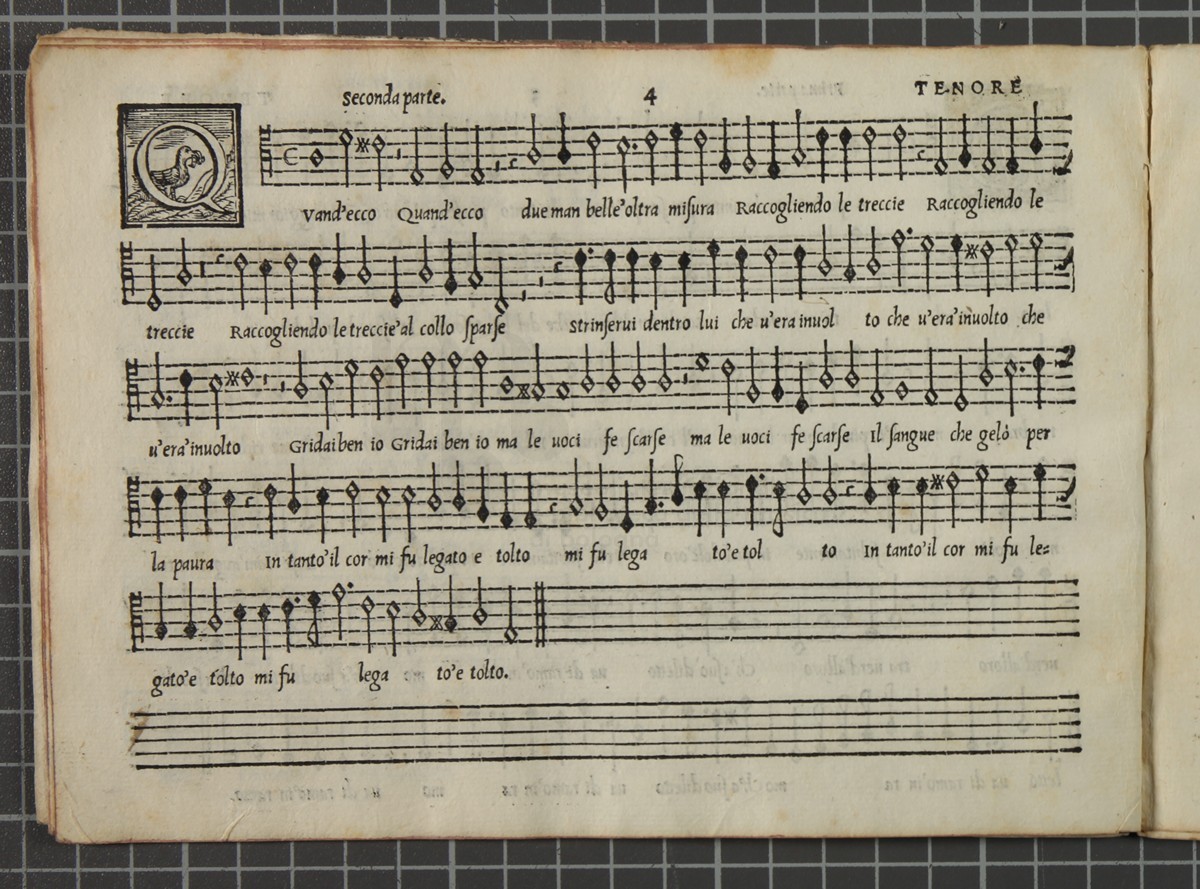 Seconda parte. 4 TENORE
QVand'ecco Quand'ecco due man belle'oltra miſura Raccogliendo le treccie Raccogliendo le
treccie Raccogliendo le treccie'al collo ſparſe Strinſerui dentro lui che u'era'inuol to che u'era'inuolto che
u'era'inuolto Gridai ben io Gridai ben io ma le uoci fe ſcarſe ma le uoci fe ſcarſe Il ſangue che gelò per
la paura In tanto'il cor mi fu legato e tolto mi fu lega to'e tol to In tanto'il cor mi fu le=
gato'e tolto mi fu lega to'e tolto.